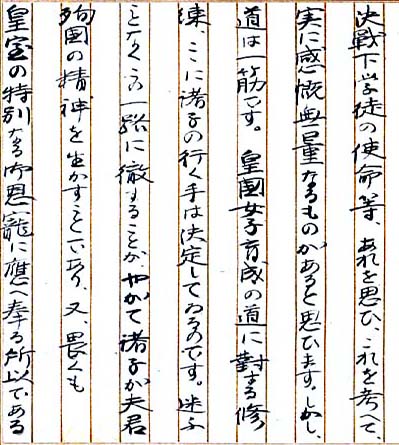 決戰下学徒の使命等、あれを思ひ、これを考へて、
実に感慨無量なるものがあると思ひます。しかし、
道は一筋です。皇國女子育成の道に對する修
練、ここに諸子の行く手は決定してゐるのです。迷ふ
ことなくこの一路に徹することが、やがて諸子が夫君
殉国の精神を生かすことであり、又、畏くも
皇室の特別なる御恩寵に應へ奉る所以である